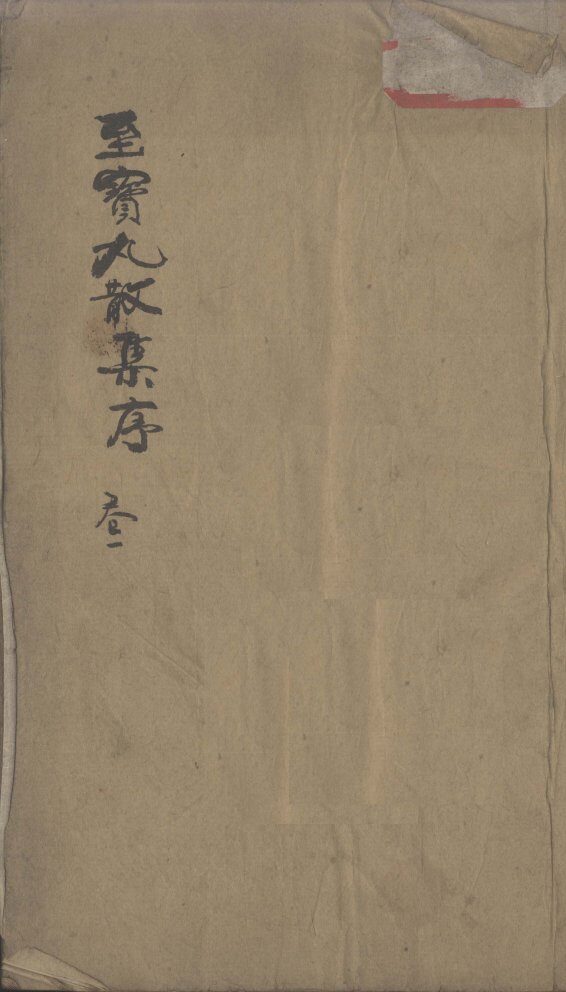 至寶丸散集序 卷一